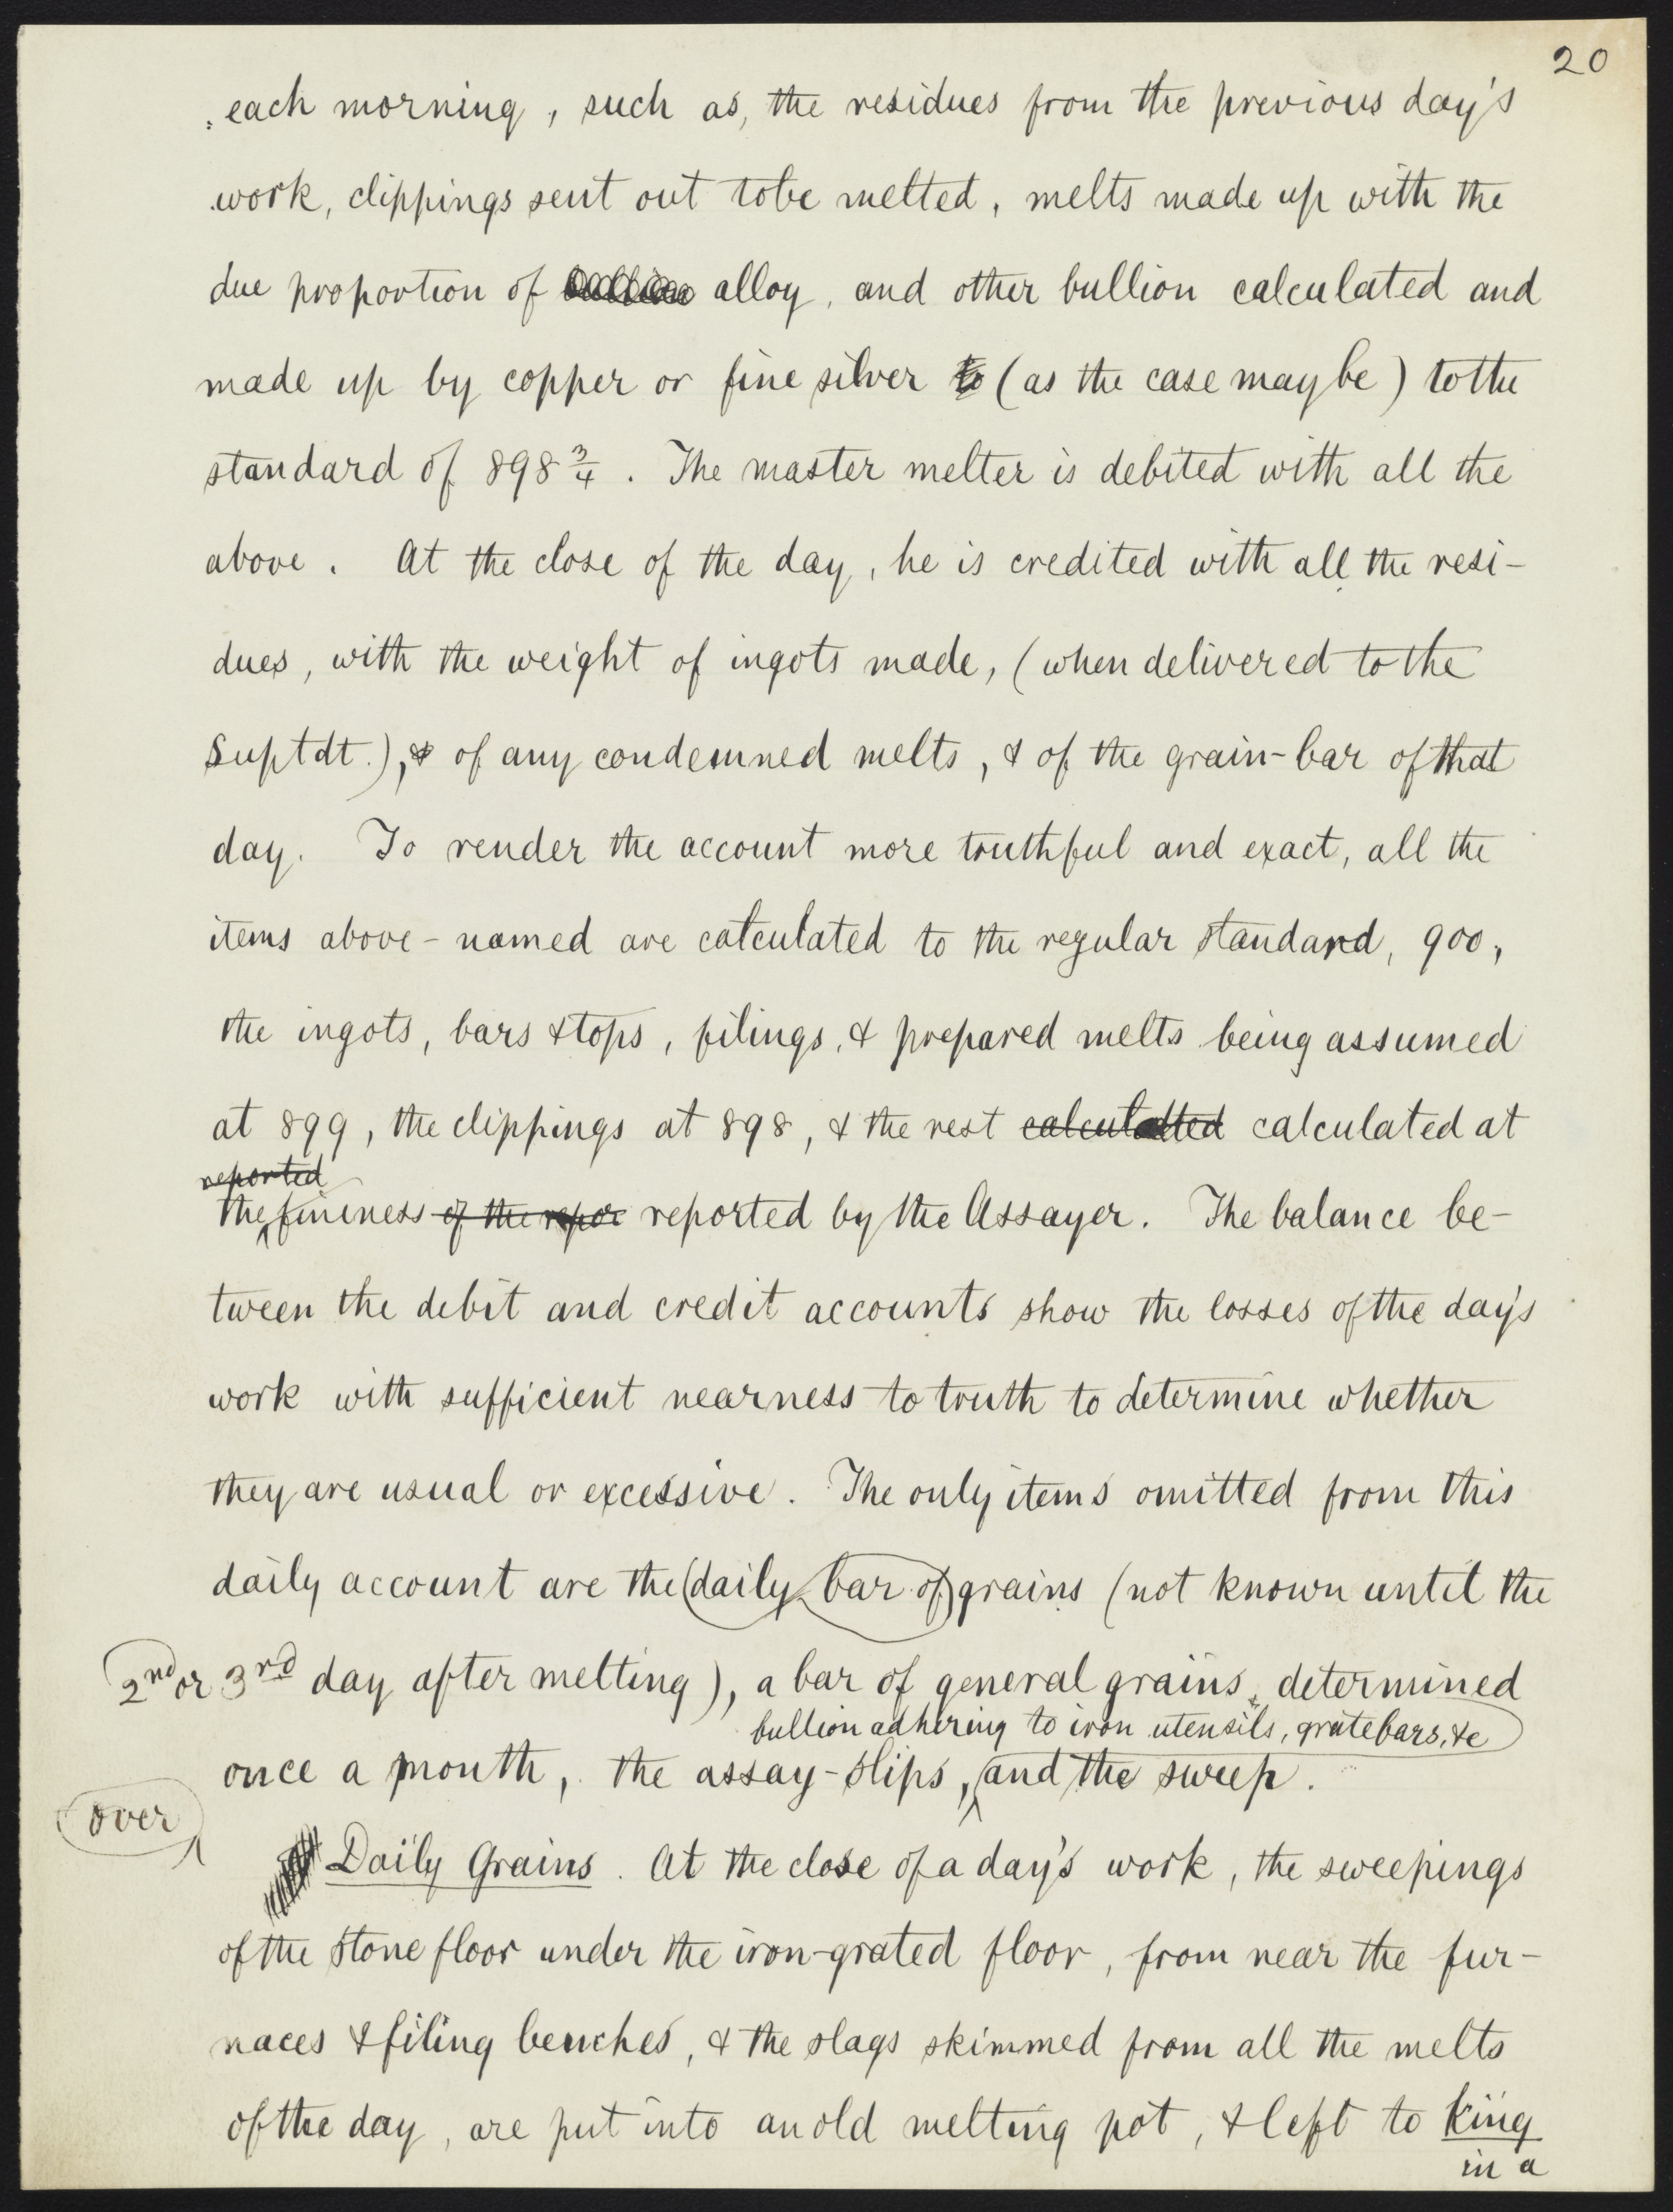 20
each morning, such as, the residues from the previous day's
work, clippings sent out tobe melted, melts made up with the
due proportion of bullion alloy, and other bullion calculated and
made up by copper or fine silver to (as the case maybe) to the
standard of 898 3/4. The master melter is debited with all the
above. At the close of the day, he is credited with all the resi-
dues, with the weight of ingots made, (when delivered to the
Suptdt.), & of any condemned melts, & of the grain-bar of that
day. To render the account more truthful and exact, all the
items above-named are calculated to the regular standard, 900,
the ingots, bars & tops, filings, & prepared melts being assumed
at 899, the clippings at 898, & the rest calculated calculated at
reported
the fineness of the repor reported by the Assayer. The balance be-
tween the debit and credit accounts show the losses of the day's
work with sufficient nearness to truth to determine whether
they are usual or excessive. The only items omitted from this
daily account are the (daily bar of) grains (not known until the
2nd or 3rd day after melting), a bar of general grains, determined
bullion adhering to iron utensils, gratebars, &c
once a month, the assay-slips, and the sweep.
over
Daily Grains. At the close of a day's work, the sweepings
of the stone floor under the iron-grated floor, from near the fur-
naces & filing benches, & the slags skimmed from all the melts
of the day, are put into an old melting pot, & left to King
in a